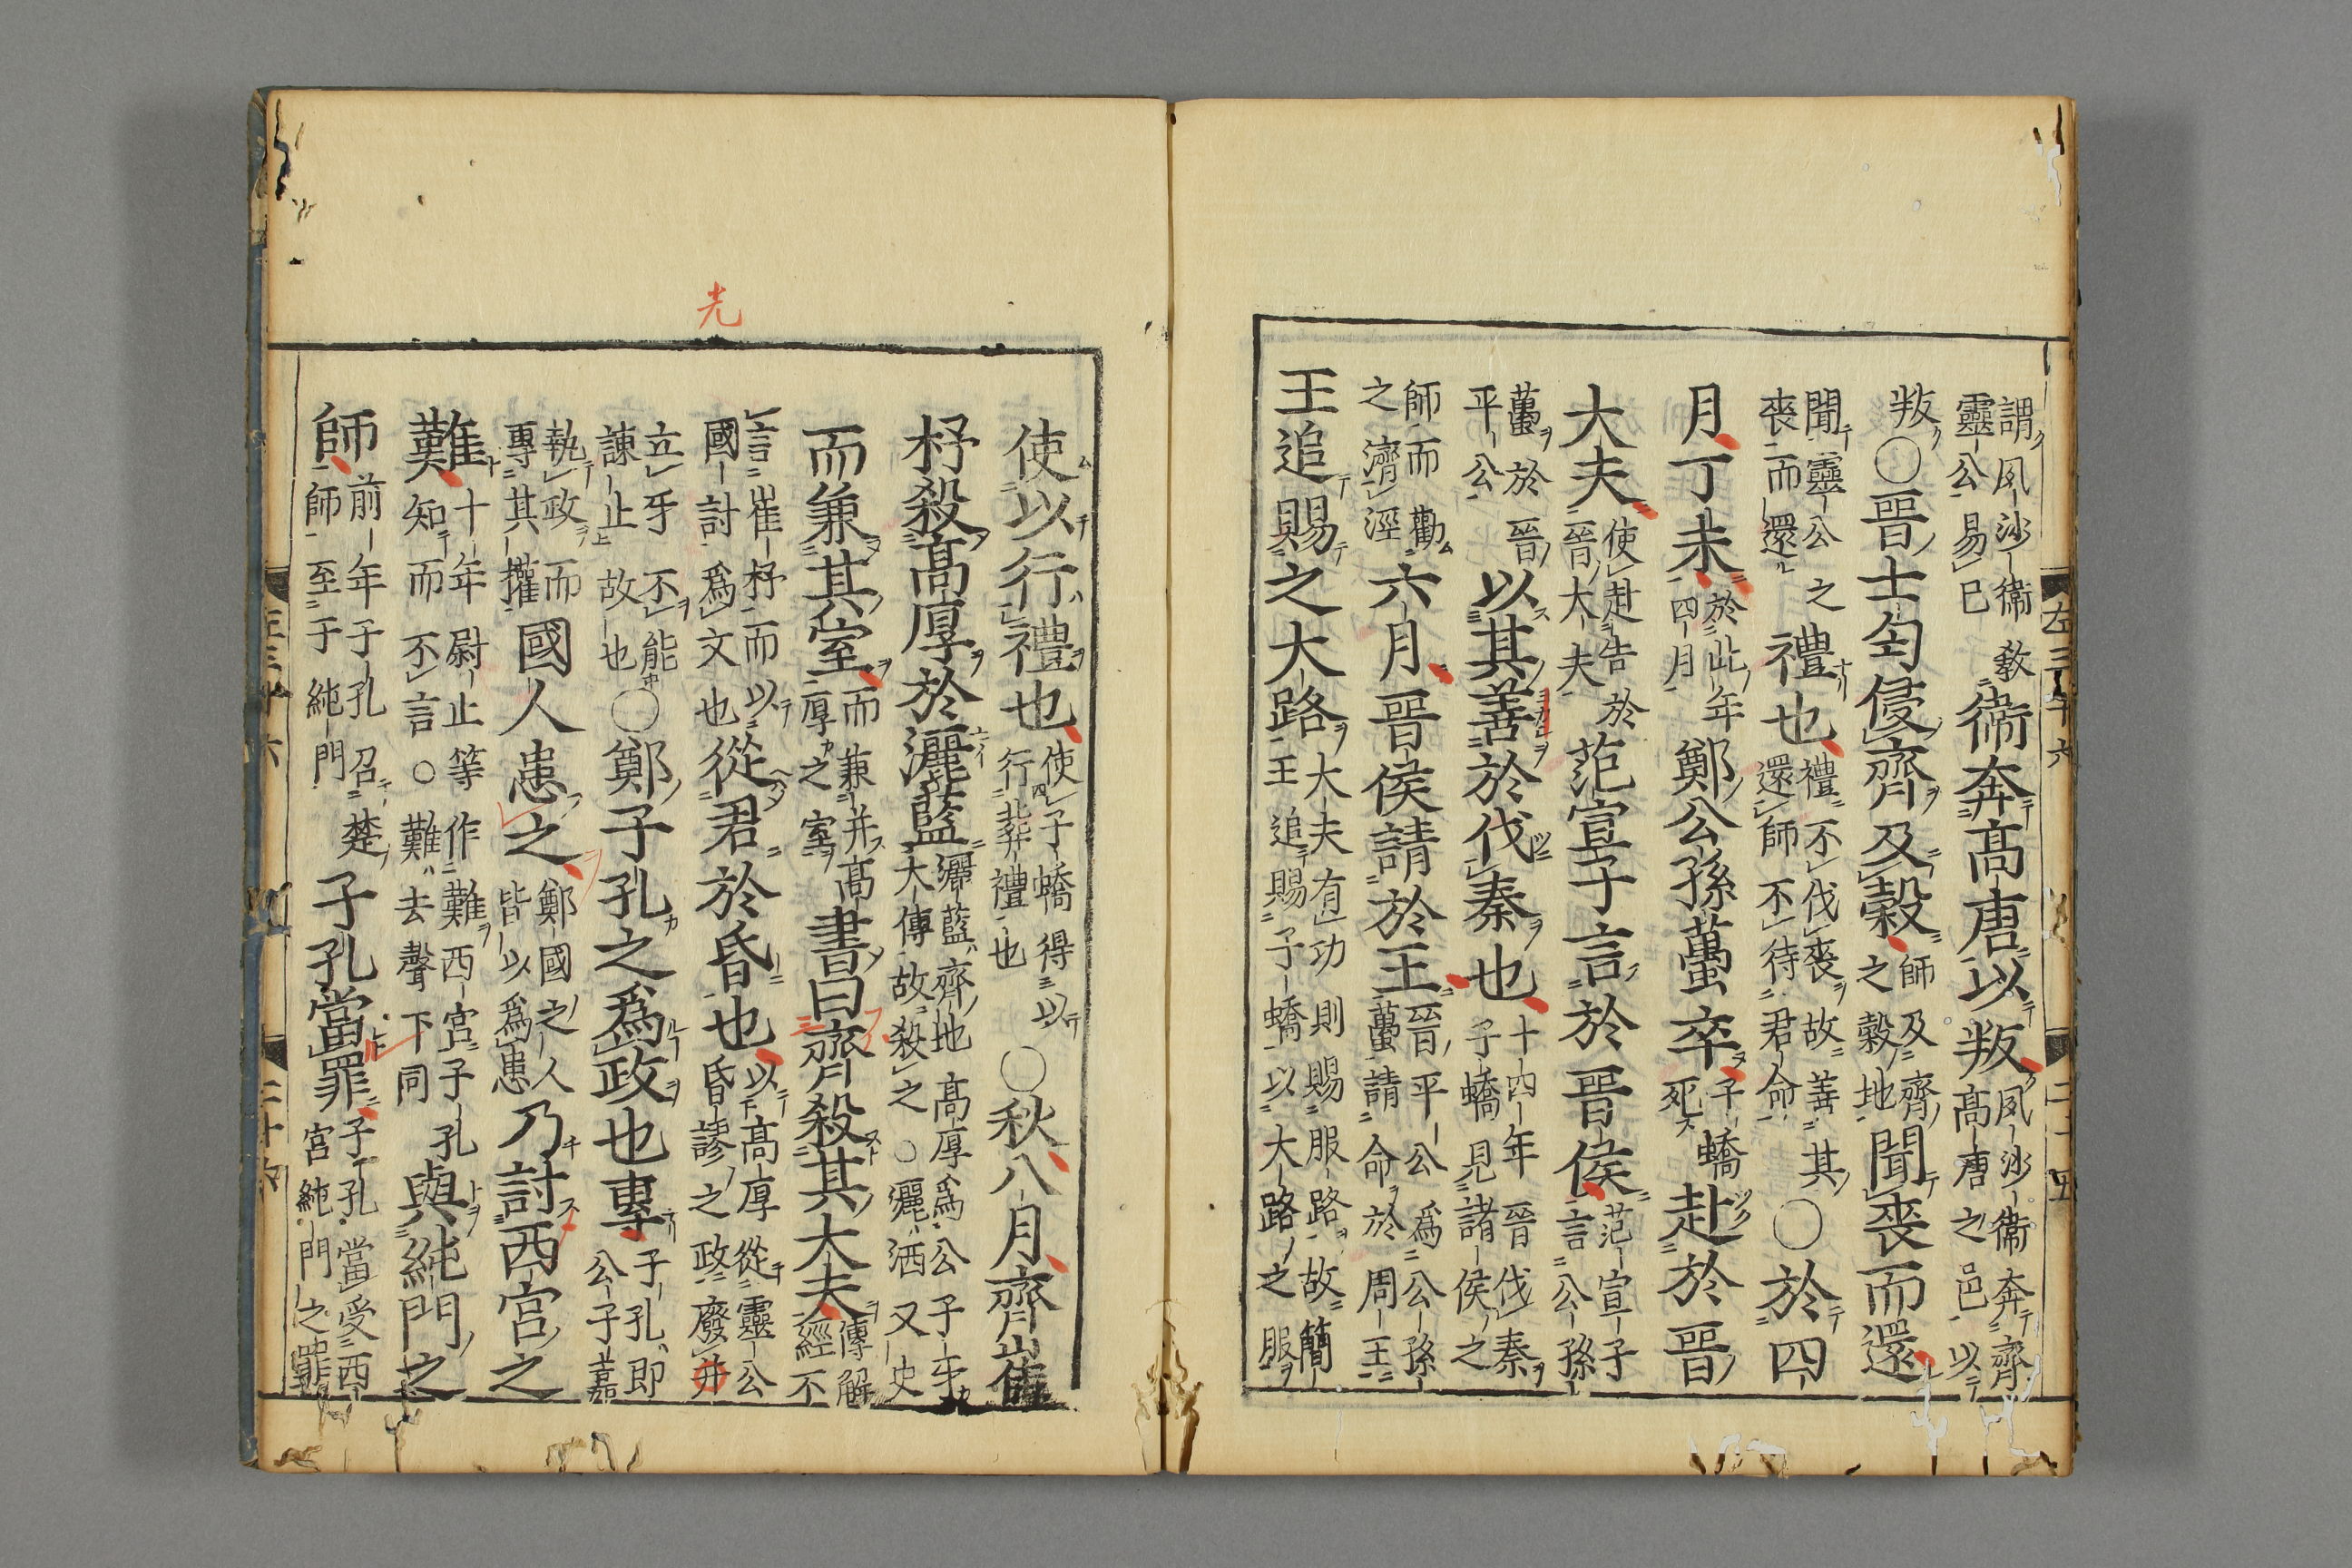 謂夙沙衞敎
靈公易已
衞奔髙唐以叛
夙沙衞奔齊
髙唐之邑以
叛○晉士匄侵齊及穀
師及齊
之穀地
聞喪而還
聞靈公之
喪而還
禮也
禮不伐喪故善其
還師不待君命
○於四
月丁未
於此年
四月
鄭公孫蠆卒
子蟜
死
赴於晉
大夫
使赴告於
晉大夫
范宣子言於晉侯
范宣子
言公孫
蠆於晉
平公
以其善於伐秦也
十四年晉伐秦
子蟜見諸侯之
師而勸
之濟涇
六月晉侯請於王
晉平公爲公孫
蠆請命於周王
王追賜之大路
大夫有功則賜服路故簡
王追賜子蟜以大路之服
使以行禮也
使子蟜得以
行葬禮也
○秋八月齊崔
杼殺髙厚於灑藍
灑藍齊地髙厚爲公子牙
大傳故殺之○灑洒又史
而兼其室
而兼并髙
厚之室
書曰齊殺其大夫
傳解
經不
言崔杼而以
國討爲文也
從君於昏也
以髙厚從靈公
昏謬之政廢并
立牙不能
諫止故也
○鄭子孔之爲政也專
子孔即
公子嘉
執政而
專其權
國人患之
鄭國之人
皆以爲患
乃討西宮之
難
十年尉止等作難西宮子孔
知而不言○難去聲下同
與純門之
師
前年子孔召楚
師至于純門
子孔當罪
子孔當受西
宮純門之罪
光